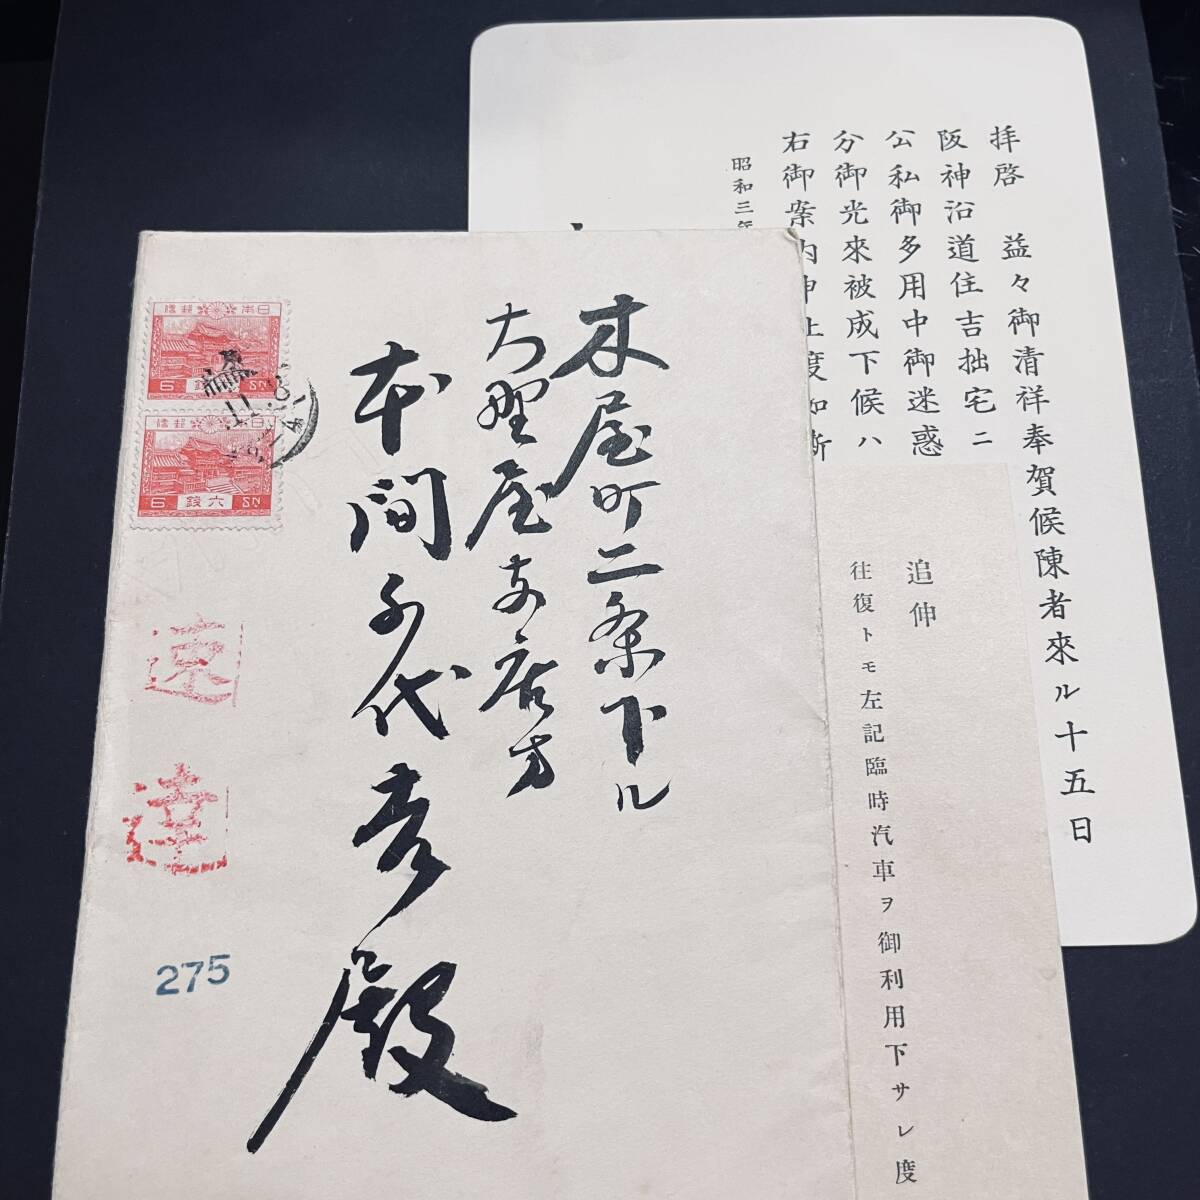 拝啓　益々御清祥奉賀候陳者來ル十五日
阪神沿道住吉拙宅ニ
公私御多用中御迷惑
分御光來被成下候ハ
右御案内申上度如斯
昭和三年
追伸
往復トモ左記臨時汽車ヲ御利用下サレ度
木屋町二条下ル
大野屋支店方
本間千代彦殿
日本郵便
6 六銭 SN
日本郵便
6 六銭 SN
速達
275